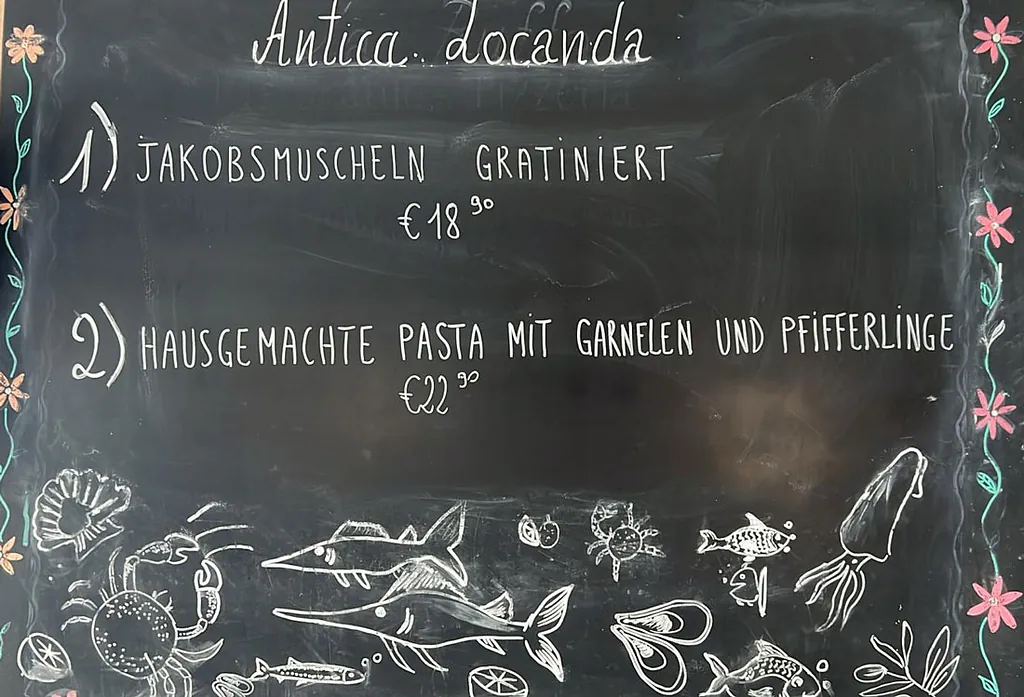 Antica Locanda
1) JAKOBSMUSCHELN GRATINIERT
€18 90
2) HAUSGEMACHTE PASTA MIT GARNELEN UND PFIFFERLINGE
€22 90